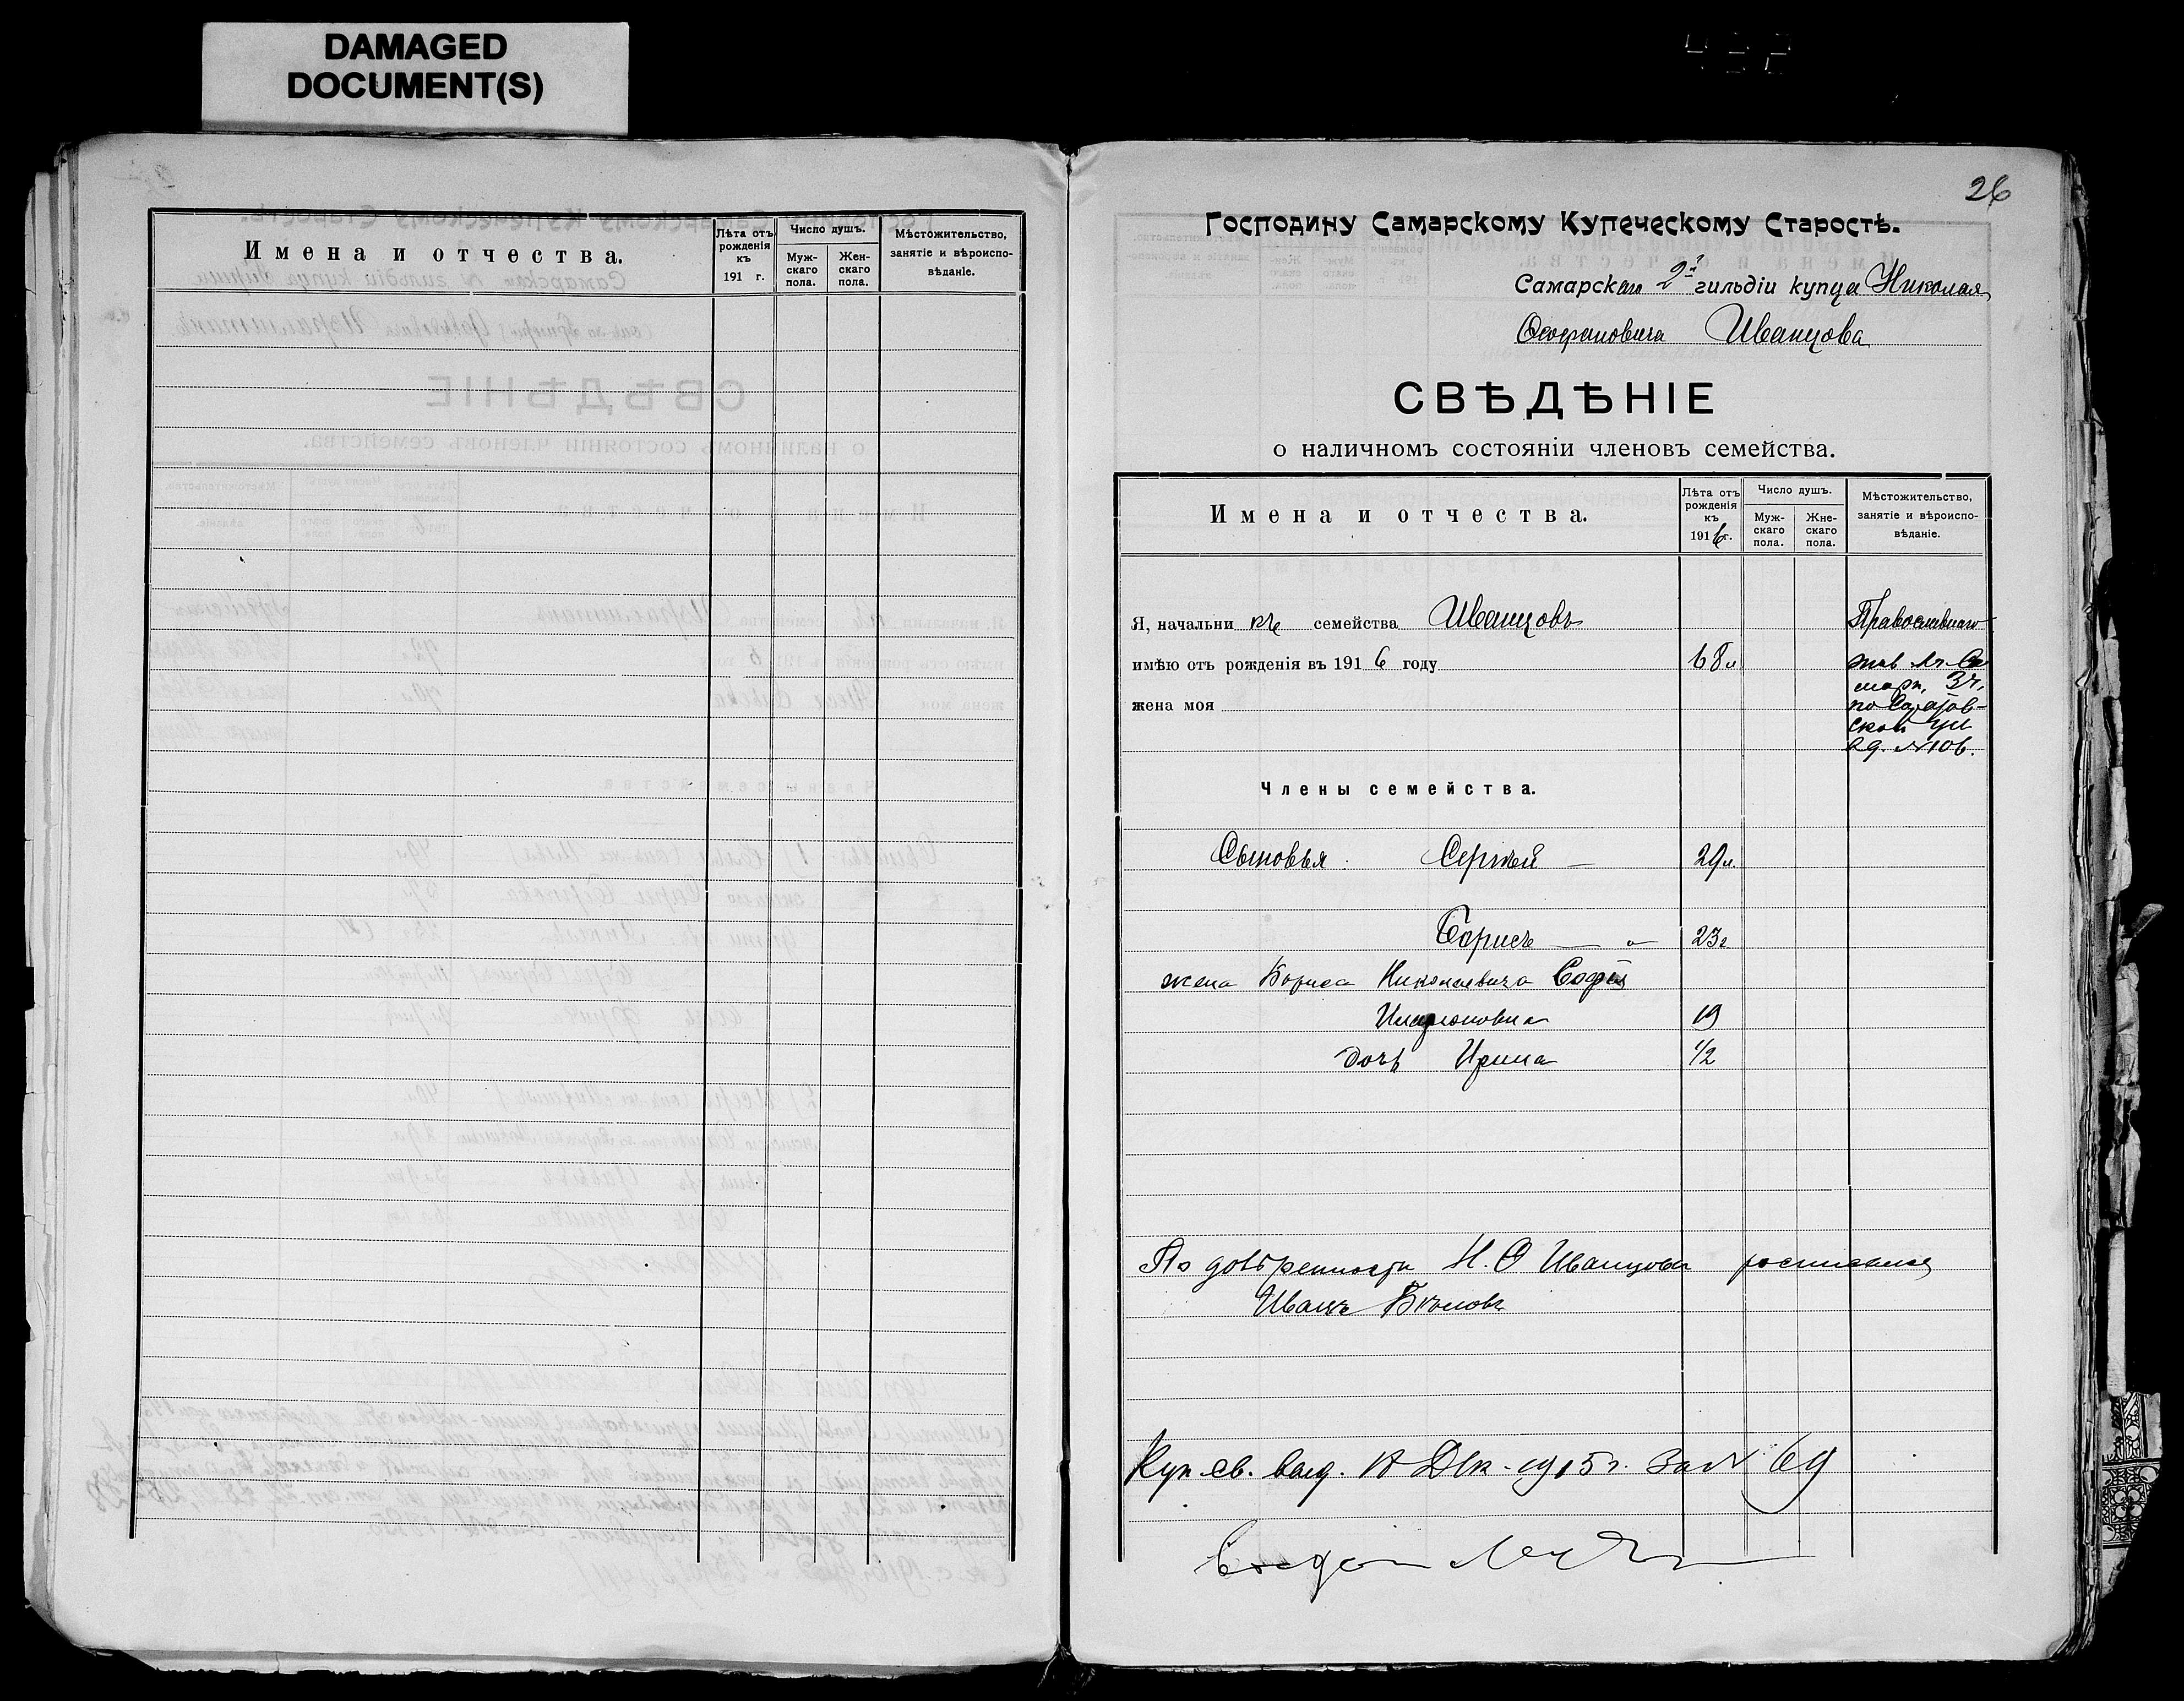 DAMAGED
DOCUMENT(S)
Имена и отчества.
Лѣта отъ рожденія къ 191 г.
Число душъ.
Муж-
скаго
пола.
Жен-
скаго
пола.
Мѣстожительство,
занятіе и вѣроиспо-
вѣданіе.
26
Господину Самарскому Купеческому Старостѣ.
Самарскаго 2й гильдіи купца Николая
Феофановича Иванцова
СВѢДѢНІЕ
о наличномъ состояніи членовъ семейства.
Имена и отчества.
Лѣта отъ
рожденія
къ
1916 г.
Число душъ.
Муж-
скаго
пола.
Жне-
скаго
пола.
Мѣстожительство,
занятіе и вѣроиспо-
вѣданіе.
Я, начальникъ семейства Иванцовъ
имѣю отъ рожденія въ 1916 году 68 л
жена моя
Православнаго
жив въ Са
марѣ, 3 ч.
по Саратов-
ской ул.
в д. №106.
Члены семейства.
Сыновья Сергѣй — 29 л.
Борисъ — " 23 г
жена Бориса Николаевича Софія
Иларіоновна 19
дочь Ирина 1/2
По довѣренности Н. Ф Иванцова росписался
Иванъ Бѣловъ
Куп. св. выд. 18 Дек. 1915 г. за № 69